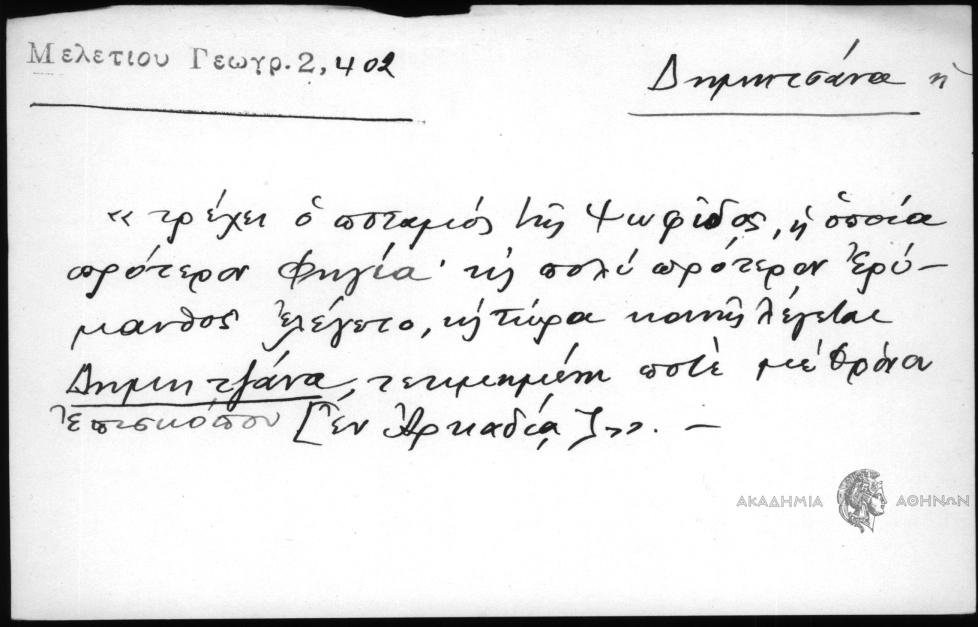 Μελετιου Γεωγρ. 2, 402
Δημητσάνα ἡ
« τρέχει ὁ ποταμός τῆς Ψωφῖδος, ἡ ὁποία
πρότερον Φηγία· κ̀ πολύ πρότερον Ἐρύ-
μανθος ἐλέγετο, κ̀ τώρα κοινῶς λέγεται
Δημητζάνα, τετιμημένη ποτέ μέ θρόνον
Ἐπισκόπου [Ἐν Ἀρκαδίᾳ]». –
ΑΚΑΔΗΜΙΑ ΑΘΗΝΩΝ